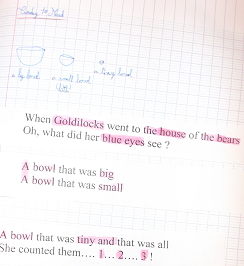 a big bowl
a small bowl
a tiny bowl
When Goldilocks went to the house of the bears
Oh, what did her blue eyes see ?
A bowl that was big
A bowl that was small
A bowl that was tiny and that was all
She counted them.... 1... 2.... 3 !